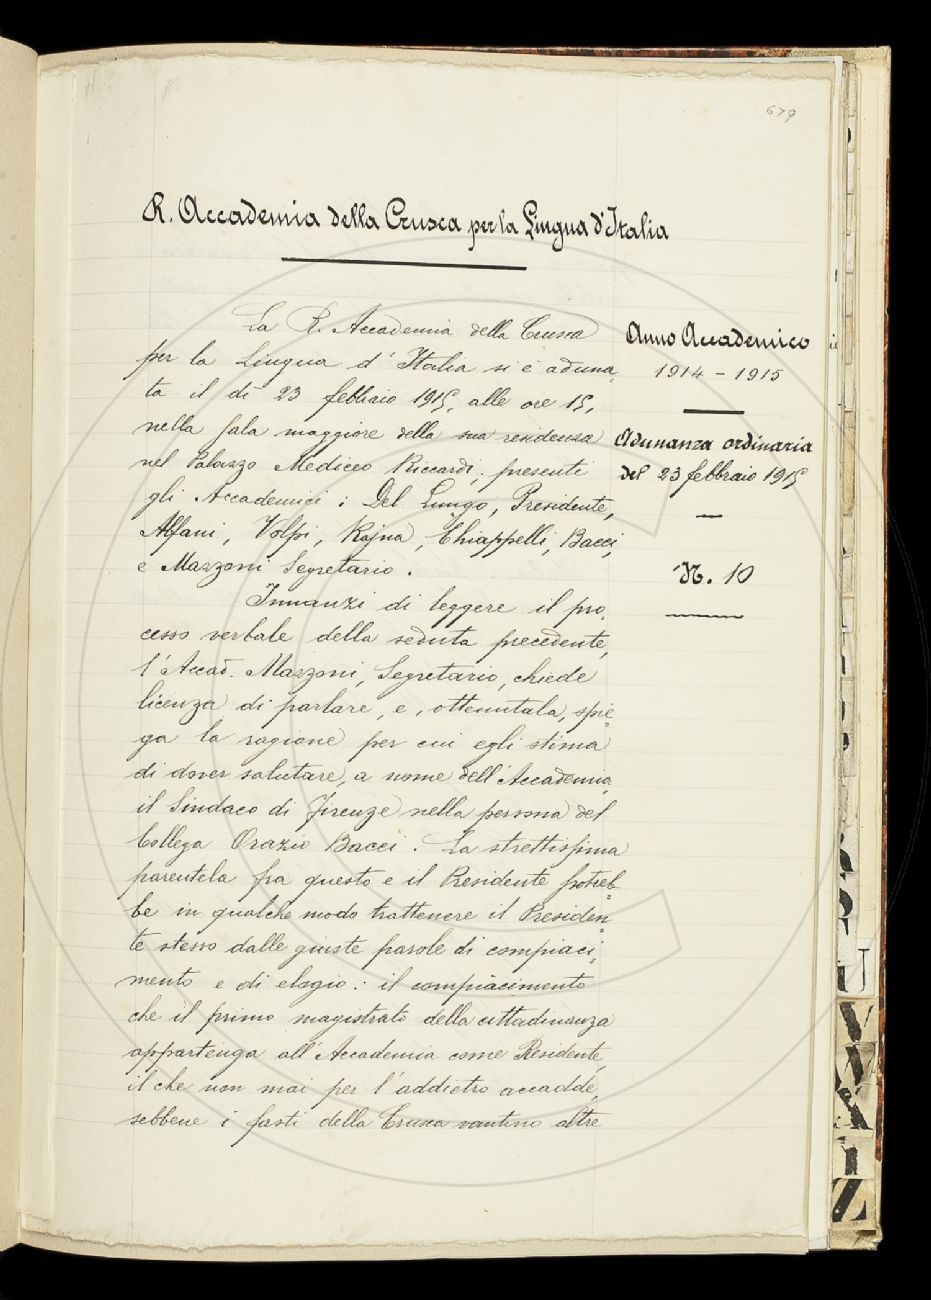 679
R. Accademia della Crusca per la Lingua d'Italia
La R. Accademia della Crusca
per la Lingua d'Italia si è aduna-
ta il dì 23 febbraio 1915, alle ore 15,
nella sala maggiore della sua residenza
nel Palazzo Mediceo Riccardi; presenti
gli Accademici: Del Lungo, Presidente,
Alfani, Volpi, Rajna, Chiappelli, Bacci,
e Mazzoni Segretario.
Innanzi di leggere il pro-
cesso verbale della seduta precedente,
l'Accad. Mazzoni, Segretario, chiede
licenza di parlare, e, ottenutala, spie-
ga la ragione per cui egli stima
di dover salutare, a nome dell'Accademia,
il Sindaco di Firenze nella persona del
Collega Orazio Bacci. La strettissima
parentela fra questo e il Presidente potreb-
be in qualche modo trattenere il Presiden-
te stesso dalle giuste parole di compiaci-
mento e di elogio: il compiacimento
che il primo magistrato della cittadinanza
appartenga all'Accademia come Residente,
il che non mai per l'addietro accadde,
sebbene i fasti della Crusca vantino altre
Anno Accademico
1914 - 1915
Adunanza ordinaria
del 23 febbraio 1915
N. 10